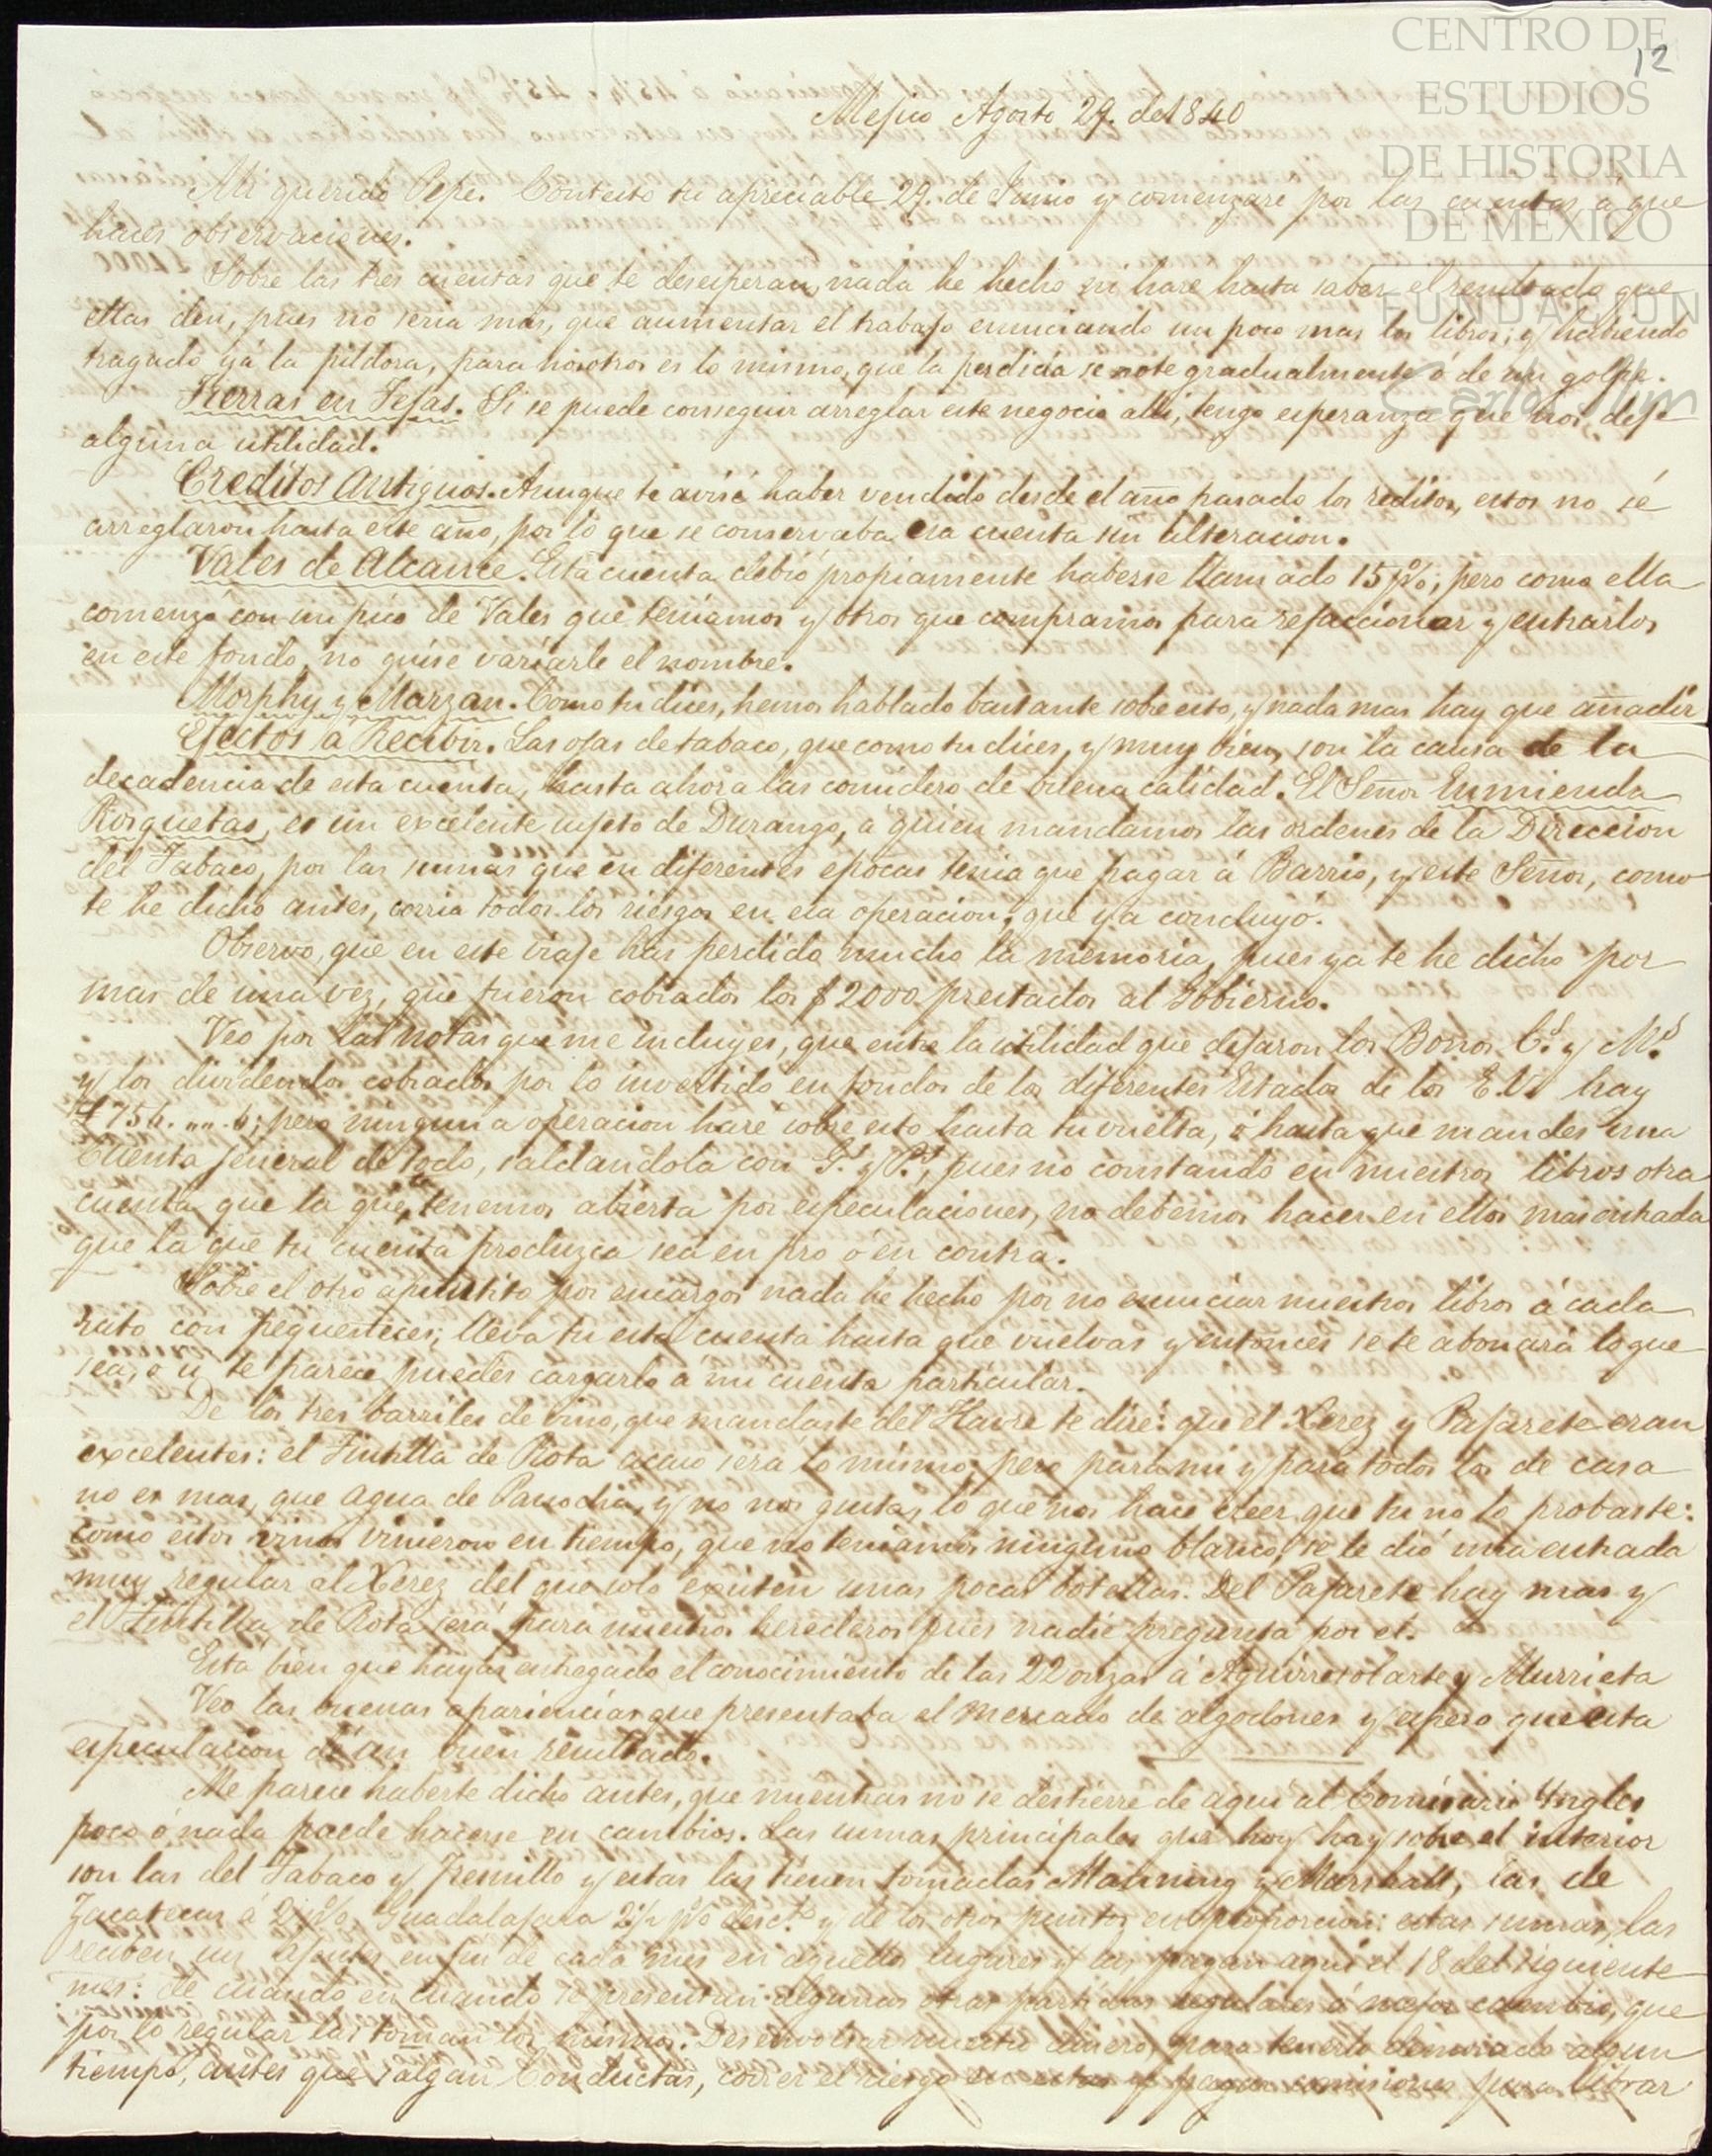 CENTRO DE
ESTUDIOS
DE HISTORIA
DE MÉXICO
FUNDACIÓN
Carlos Slim
12
Mejico Agosto 29. de 1840
Mi querido Pepe. Contesto tu apreciable 29. de Junio y comenzaré por las cuentas á que
haces observaciones.
Sobre las tres cuentas que te desesperan, nada he hecho ni hare hasta saber el resultado que
ellas den, pues no seria mas, que aumentar el trabajo ensuciando un poco mas los libros; y habiendo
tragado yá la pildora, para nosotros es lo mismo, que la perdida se note gradualmente ó de un golpe.
Tierras en Tejas. Si se puede conseguir arreglar este negocio alli, tengo esperanza que nos deje
alguna utilidad.
Creditos Antiguos. Aunque te avisé haber vendido desde el año pasado los reditos, estos no se
arreglaron hasta este año, por lo que se conservaba esa cuenta sin alteracion.
Vales de Alcance. Esta cuenta debió propiamente haberse llamado 15 p%; pero como ella
comenzó con un pico de Vales que teniamos y otros que compramos para refaccionar y entrarlos
en este fondo, no quise variarle el nombre.
Morphy y Marzan. Como tu dices, hemos hablado bastante sobre esto, y nada mas hay que añadir
Efectos a Recibir. Las ojas de tabaco, que como tu dices, y muy bien, son la causa de la
decadencia de esta cuenta, hasta ahora las considero de buena calidad. El Señor Enmienda
Rosquetas, es un excelente sujeto de Durango, á quien mandamos las ordenes de la Direccion
del Tabaco, por las sumas que en diferentes epocas tenia que pagar á Barrio, y este Señor, como
te he dicho antes, corria todos los riesgos en esa operacion, que ya concluyo.
Observo, que en este viaje has perdido mucho la memoria, pues ya te he dicho por
mas de una vez, que fueron cobrados los $2000 prestados al Gobierno.
Veo por las notas que me incluyes, que entre la utilidad que dejaron los Bonos C.s y M.s
y los dividendos cobrados por lo invertido en fondos de los diferentes Estados de los E.U. hay
£ 756. „„. 6; pero ninguna operacion haré sobre esto hasta tu vuelta, ó hasta que mandes una
Cuenta general de todo, saldandola con G.s y P.s, pues no constando en nuestros libros otra
cuenta que la que tenemos abierta por especulaciones, no debemos hacer en ellos mas entrada
que la que tu cuenta produzca sea en pro ó en contra.
Sobre el otro apuntito por encargos nada he hecho por no ensuciar nuestros libros á cada
rato con pequeñeces; lleva tu esta cuenta hasta que vuelvas y entonces se te abonará lo que
sea, ó si te parece puedes cargarlo á mi cuenta particular.
De los tres barriles de vino, que mandaste del Havre te diré: que el Xerez y Pajarete eran
excelentes: el Tintilla de Rota acaso sera lo mismo, pero para mi y para todos los de casa
no es mas, que agua de y no nos gusta, lo que nos hace creer que tu no lo probaste:
como estos vinos vinieron en tiempo, que no teniamos ninguno blanco, se le dió una entrada
muy regular al Xerez del que solo existen unas pocas botellas. Del Pajarete hay mas y
el Tintilla de Rota será para nuestros herederos pues nadie pregunta por el.
Está bien que hayas entregado el conocimiento de las 22 onzas á Aguirresolarte y Murrieta
Veo las buenas apariencias que presentaba el mercado de algodones y espero que esta
especulacion dé un buen resultado.
Me parece haberte dicho antes, que mientras no se destierre de aqui al Comisario Ingles
poco ó nada puede hacerse en cambios. Las sumas principales que hoy hay sobre el interior
son las del Tabaco y Fresnillo y estas las tienen tomadas Manning y Marshall, las de
Zacatecas á 2 p%, Guadalajara 2½ p% desc.to y de los otros puntos en proporcion: estas sumas, las
reciben sus agentes en fin de cada mes en aquellos lugares y las pagan aqui el 18 del siguiente
mes: de cuando en cuando se presentan algunas otras partidas regulares á mejor cambio, que
por lo regular las toman los mismos. Desembolsar nuestro dinero, para tenerlo demorado algun
tiempo, antes que salgan Conductas, correr el riesgo en estas y pagar comisiones para librar